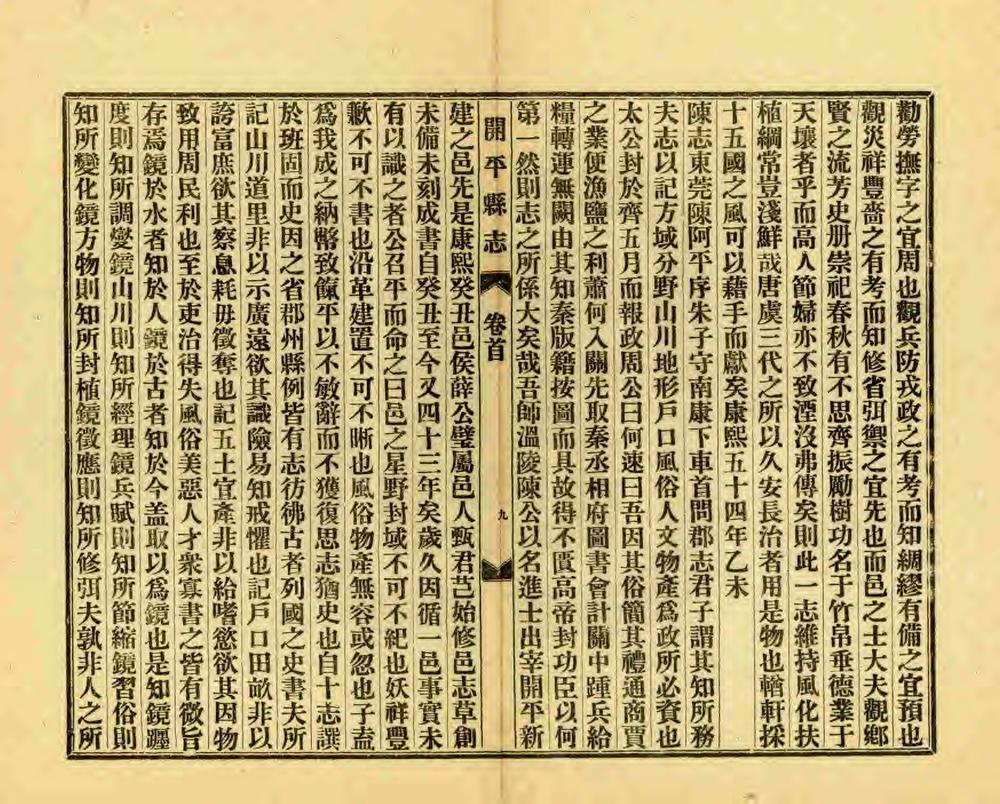 勸勞撫字之宜周也觀兵防戎政之有考而知綢繆有備之宜預也
觀災祥豐嗇之有考而知修省弭禦之宜先也而邑之士大夫觀鄉
賢之流芳史册崇祀春秋有不思齊振勵樹功名于竹帛垂德業于
天壤者乎而高人節婦亦不致湮沒弗傳矣則此一志維持風化扶
植綱常豈淺鮮哉唐虞三代之所以久安長治者用是物也輶軒採
十五國之風可以藉手而獻矣康熙五十四年乙未
陳志東莞陳阿平序朱子守南康下車首問郡志君子謂其知所務
夫志以記方域分野山川地形戶口風俗人文物產爲政所必資也
太公封於齊五月而報政周公曰何速曰吾因其俗簡其禮通商賈
之業便漁鹽之利蕭何入關先取秦丞相府圖書會計關中踵兵給
糧轉運無闕由其知秦版籍按圖而具故得不匱高帝封功臣以何
第一然則志之所係大矣哉吾師溫陵陳公以名進士出宰開平新
開平縣志 卷首 九
建之邑先是康熙癸丑邑侯薛公璧屬邑人甄君芑始修邑志草創
未備未刻成書自癸丑至今又四十三年矣歲久因循一邑事實未
有以識之者公召平而命之曰邑之星野封域不可不紀也妖祥豐
歉不可不書也沿革建置不可不晰也風俗物產無容或忽也子盍
爲我成之納幣致餼平以不敏辭而不獲復思志猶史也自十志譔
於班固而史因之省郡州縣例皆有志彷彿古者列國之史書夫所
記山川道里非以示廣遠欲其識險易知戒懼也記戶口田畝非以
誇富庶欲其察息耗毋徵奪也記五土宜產非以給嗜慾欲其因物
致用周民利也至於吏治得失風俗美惡人才衆寡書之皆有微旨
存焉鏡於水者知於人鏡於古者知於今盖取以爲鏡也是知鏡躔
度則知所調燮鏡山川則知所經理鏡兵賦則知所節縮鏡習俗則
知所變化鏡方物則知所封植鏡徵應則知所修弭夫孰非人之所